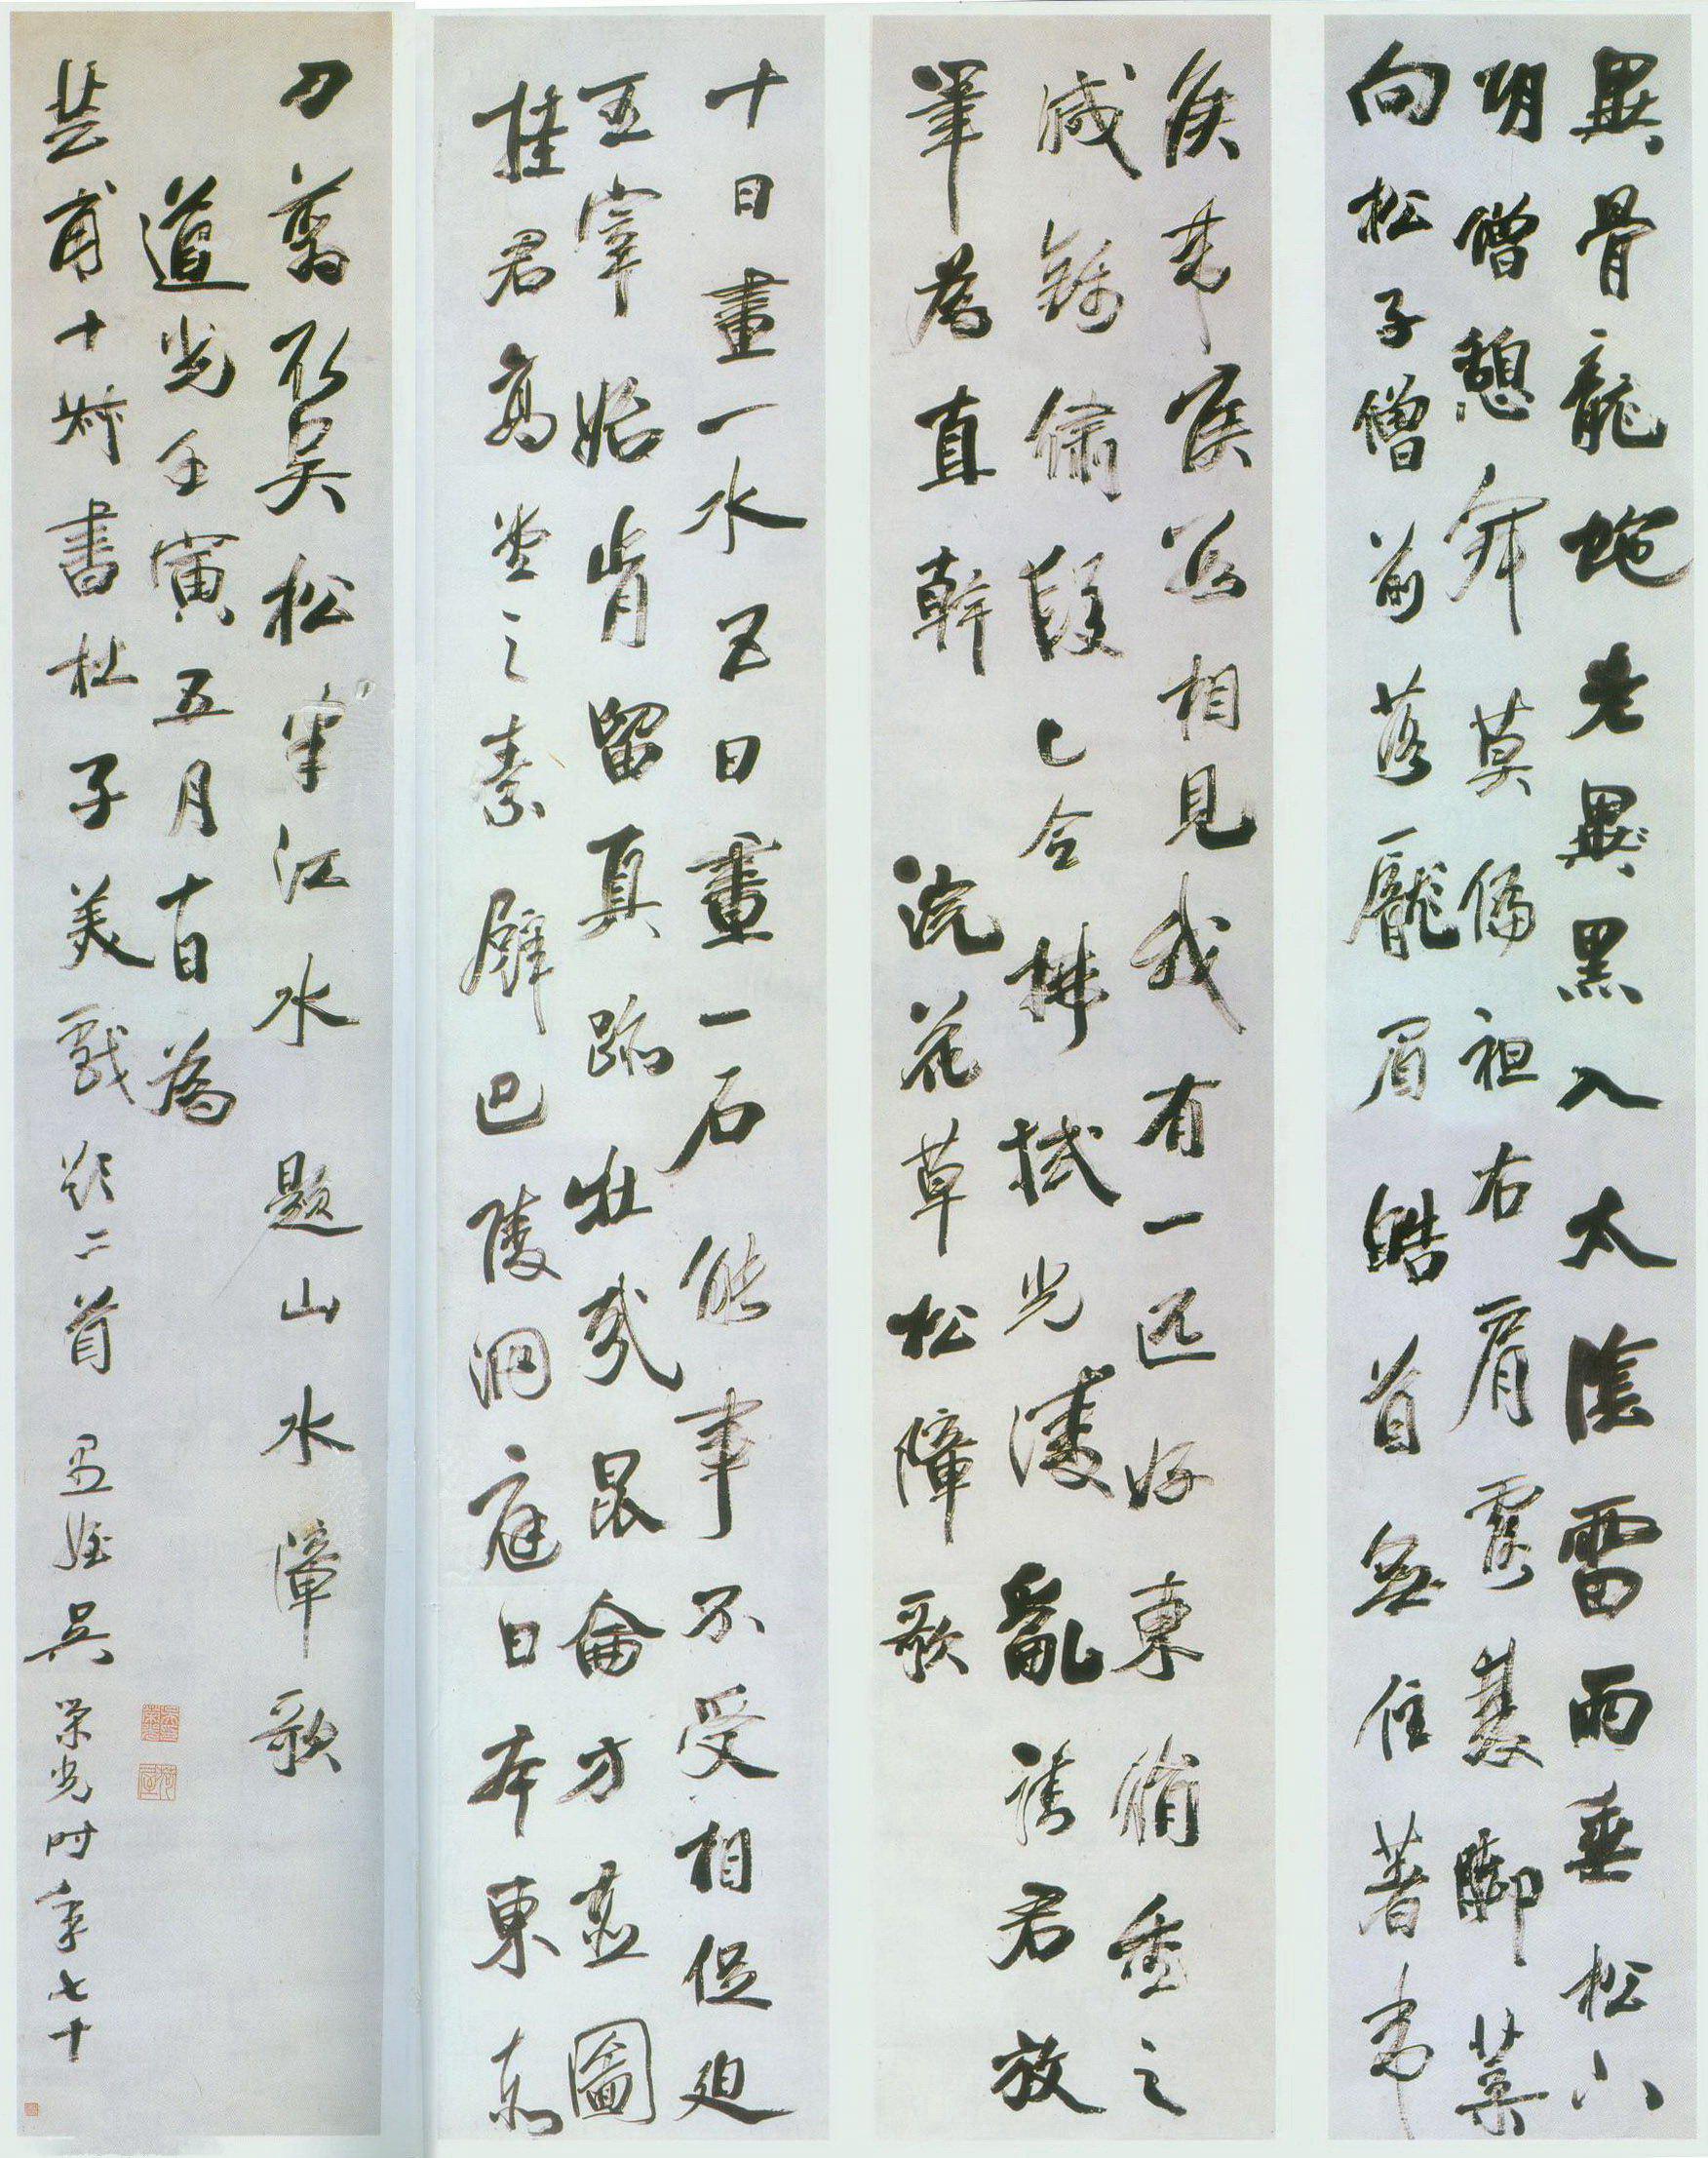 異骨龍虵老異黑入太陰雷雨垂松下
胡僧憩寂莫偏袒右肩露雙脚葉
向松子僧前落龐眉皓首無住著韋
侯韋侯數相見我有一匹好東絹重之
減錦繡段已令拂拭光凌亂請君放
筆為直幹 浣花草松障歌
十日畫一水五日畫一石能事不受相促迫
王宰始肯留真跡壯哉昆侖方壺圖
挂君高堂之素壁巴陵洞庭日本東
刀翦取吳松半江水 題山水障歌
道光壬寅五月十一日為
芸甫十叔書杜子美戲題二首 愚姪吳榮光時年七十